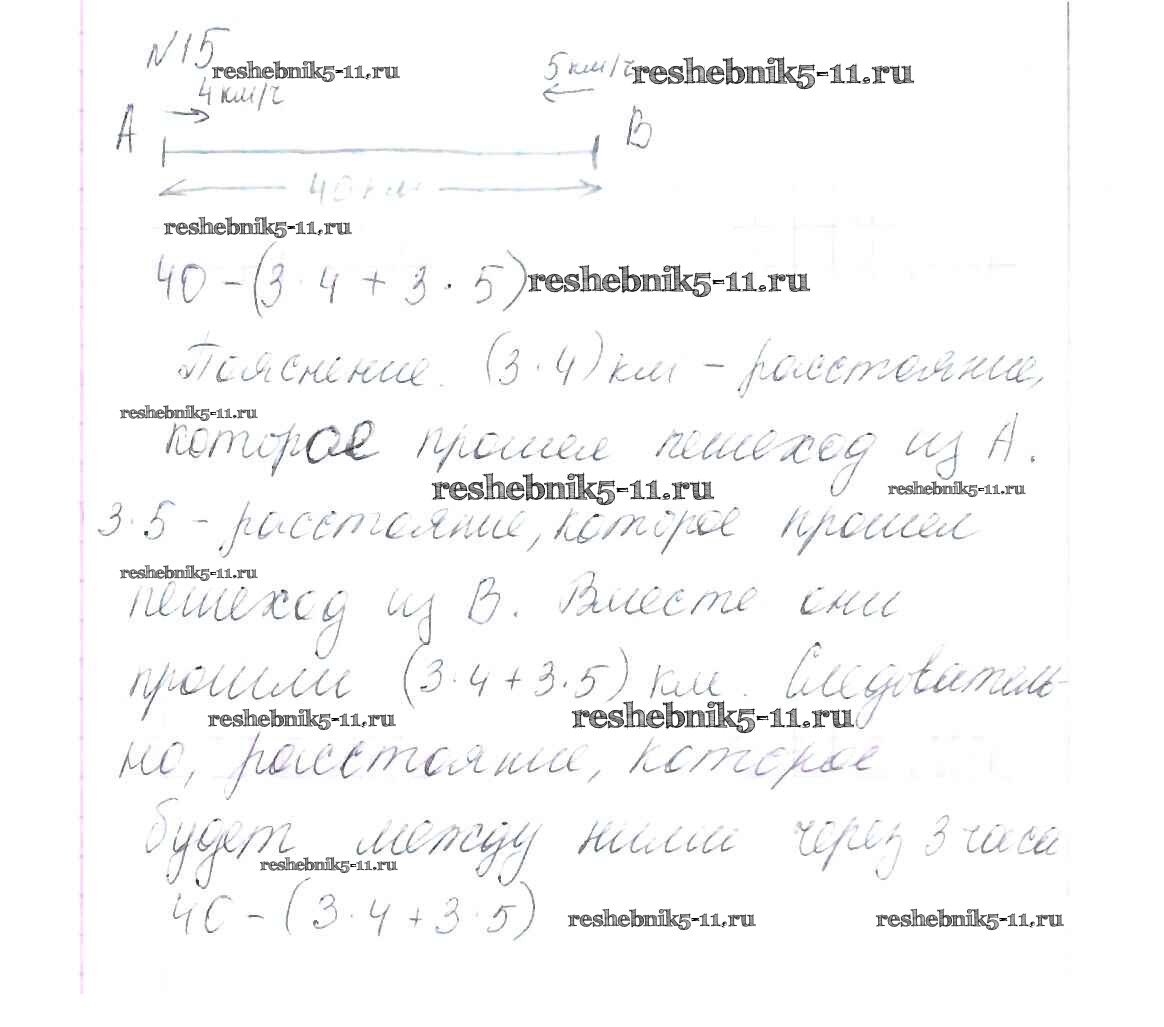 №15 reshebnik5-11.ru 5 км/ч reshebnik5-11.ru
4 км/ч
А В
40 км
reshebnik5-11.ru
40 - (3 · 4 + 3 · 5) reshebnik5-11.ru
Пояснение. (3 · 4) км - расстояние,
reshebnik5-11.ru
которое прошел пешеход из А.
reshebnik5-11.ru reshebnik5-11.ru
3 · 5 - расстояние, которое прошел
reshebnik5-11.ru
пешеход из В. Вместе они
прошли (3 · 4 + 3 · 5) км. Следователь-
reshebnik5-11.ru reshebnik5-11.ru
но, расстояние, которое
будет между ними через 3 часа
reshebnik5-11.ru
40 - (3 · 4 + 3 · 5) reshebnik5-11.ru reshebnik5-11.ru